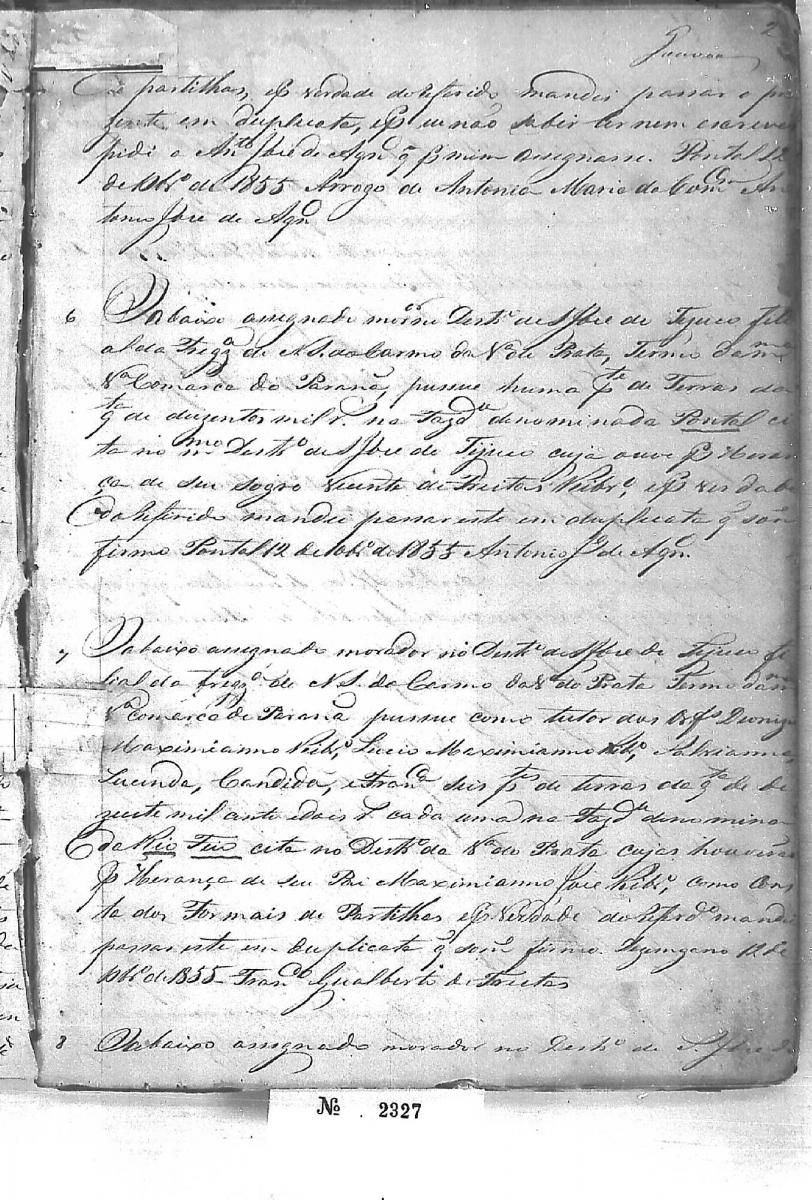 2
de partilhas, e pr verdade do referido mandei passar o pre
zente em duplicata, e pr eu não saber ler nem escrever
pedi a Anto Joze de Agro q pr mim assignasse. Pontal 12
de 10bro de 1855 Arrogo de Antonia Maria da Comco An
tonio Joze de Agro
6 O abaixo assignado morador no Destro de S. Joze de Tejuco fili
al da Fregza de N. S. do Carmo da Va do Prata, Termo da ma
Va Comarca do Paraná, pussue huma pte de Terras da
qta de duzentos mil r. na Fazda denominada Pontal ci
ta no mmo Destro de S. Joze de Tejuco cuja ouve pr Heran
ça de seu sogro Vicente de Freitas Ribro, e pr verdade
do referido mandei passar este em duplicata q somte
firmo Pontal 12 de 10bro de 1855 Antonio Je de Agro
7 O abaixo assignado morador no Destro de S. Joze de Tejuco fi
lial da Fregza de N. S. do Carmo da Va do Prata Termo da ma
Va Comarca do Paraná pussue como tutor dos
Maximianno Ribro, Lucio Maximianno Ribro,
Lucinda, Candida, e Franca seis ptes de terras da qta de de
zecete mil cento e dois r. cada uma na Fazda denomina
da Rio Feio cita no Destro da Va do Prata cujas houverão
pr Herança de seu Pai Maximianno Joze Ribro, como cons
ta dos Formais de Partilhas e pr verdade do referdo mandei
passar este em duplicata q somte firmo. 12 de
10bro de 1855 Franco Gualberto de Freitas
8 O abaixo assignado morador no Destro de S. Joze de
No 2327